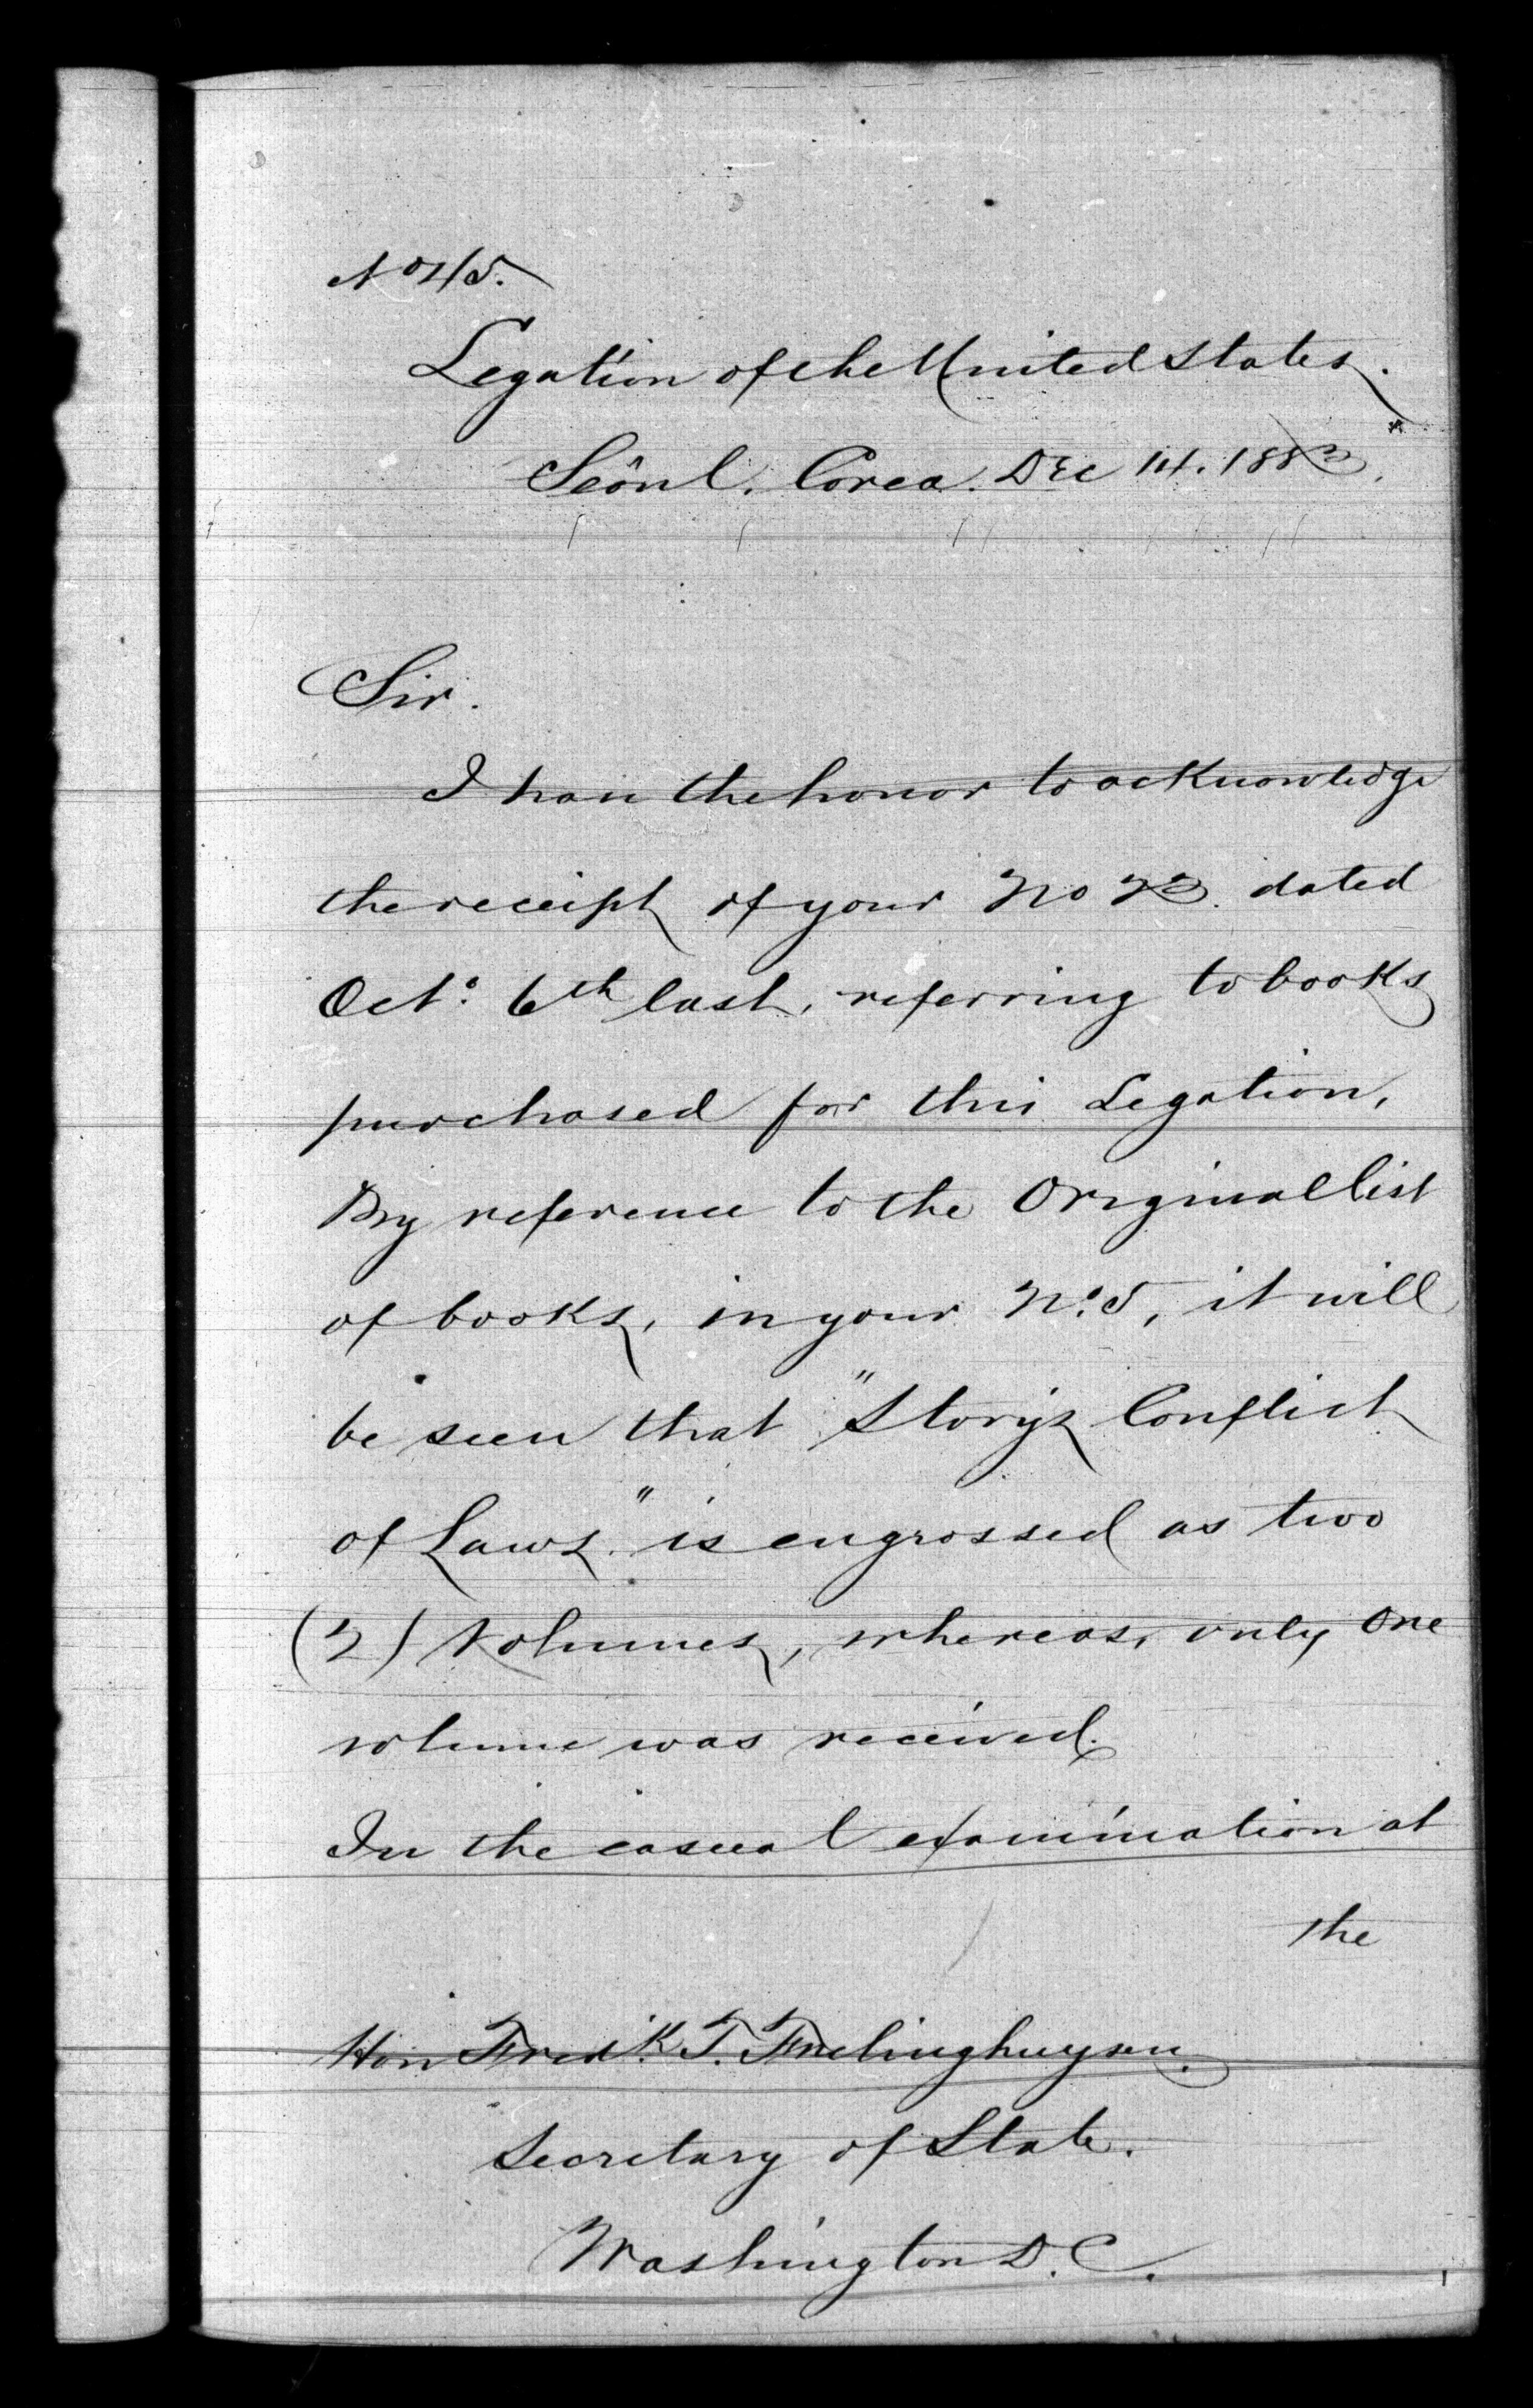 No 45.
Legation of the United States.
Seôul. Corea. Dec 14. 1883.
Sir.
I have the honor to acknowledge
the receipt of your No 23. dated
Oct. 6th last, referring to books
purchased for this Legation,
By reference to the Original list
of books, in your No. 5, it will
be seen that "Story's Conflict
of Laws." is engrossed as two
(2) Volumes, whereas, only One
volume was received.
In the casual examination at
the
Hon Fred.k T. Frelinghuysen.
Secretary of State.
Washington D.C.